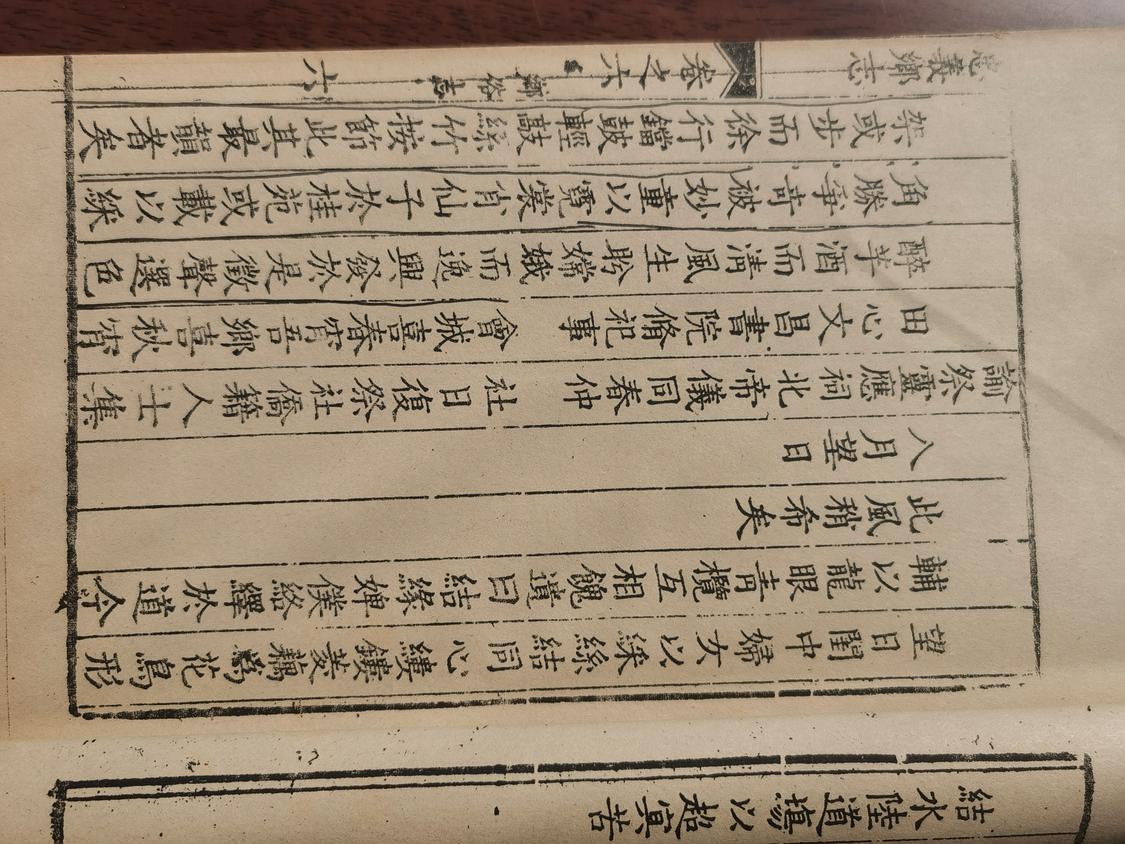 結水陸道塲以超冥苦
望日閨中婦女以綵絲結同心縷鏤菱藕爲花鳥形
輔以龍眼靑欖互相餽遺曰結緣婢僕絡繹於道今
此風稍希矣
八月望日
諭祭靈應祠北帝儀同春仲 社日復祭社僑籍人士集
田心文昌書院脩祀事 會城喜春宵吾鄉喜秋宵
醉芋酒而清風生盻嫦娥而逸興發於是徵聲選色
角勝爭奇被妙童以霓裳肖仙子於桂苑或載以綵
架或步而徐行鐺鼓輕敲絲竹按節此其最韻者矣
忠義鄉志 卷之六 鄉俗志 六